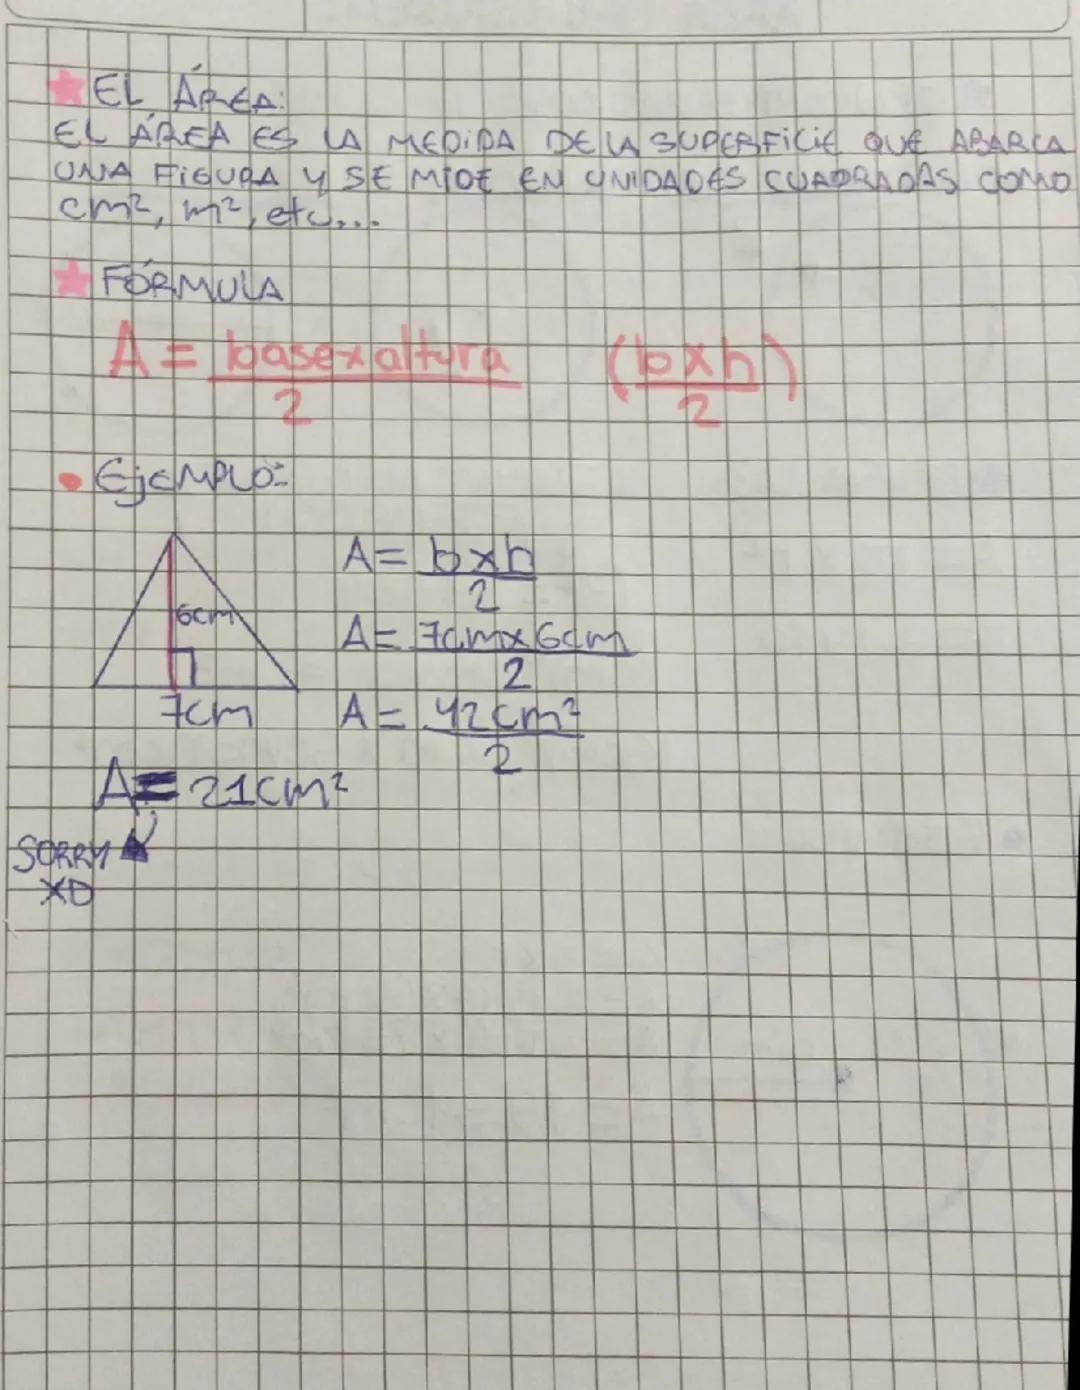 EL ÁREA:
EL ÁREA ES LA MEDIDA DE LA SUPERFICIE QUE ABARCA
UNA FIGURA Y SE MIDE EN UNIDADES CUADRADAS COMO
cm², m², etc...
FÓRMULA
A = base x altura / 2 (b x h / 2)
• EJEMPLO:
A = b x h / 2
6cm
A = 7cm x 6cm / 2
7cm
A = 42cm² / 2
A = 21cm²
SORRY
XD